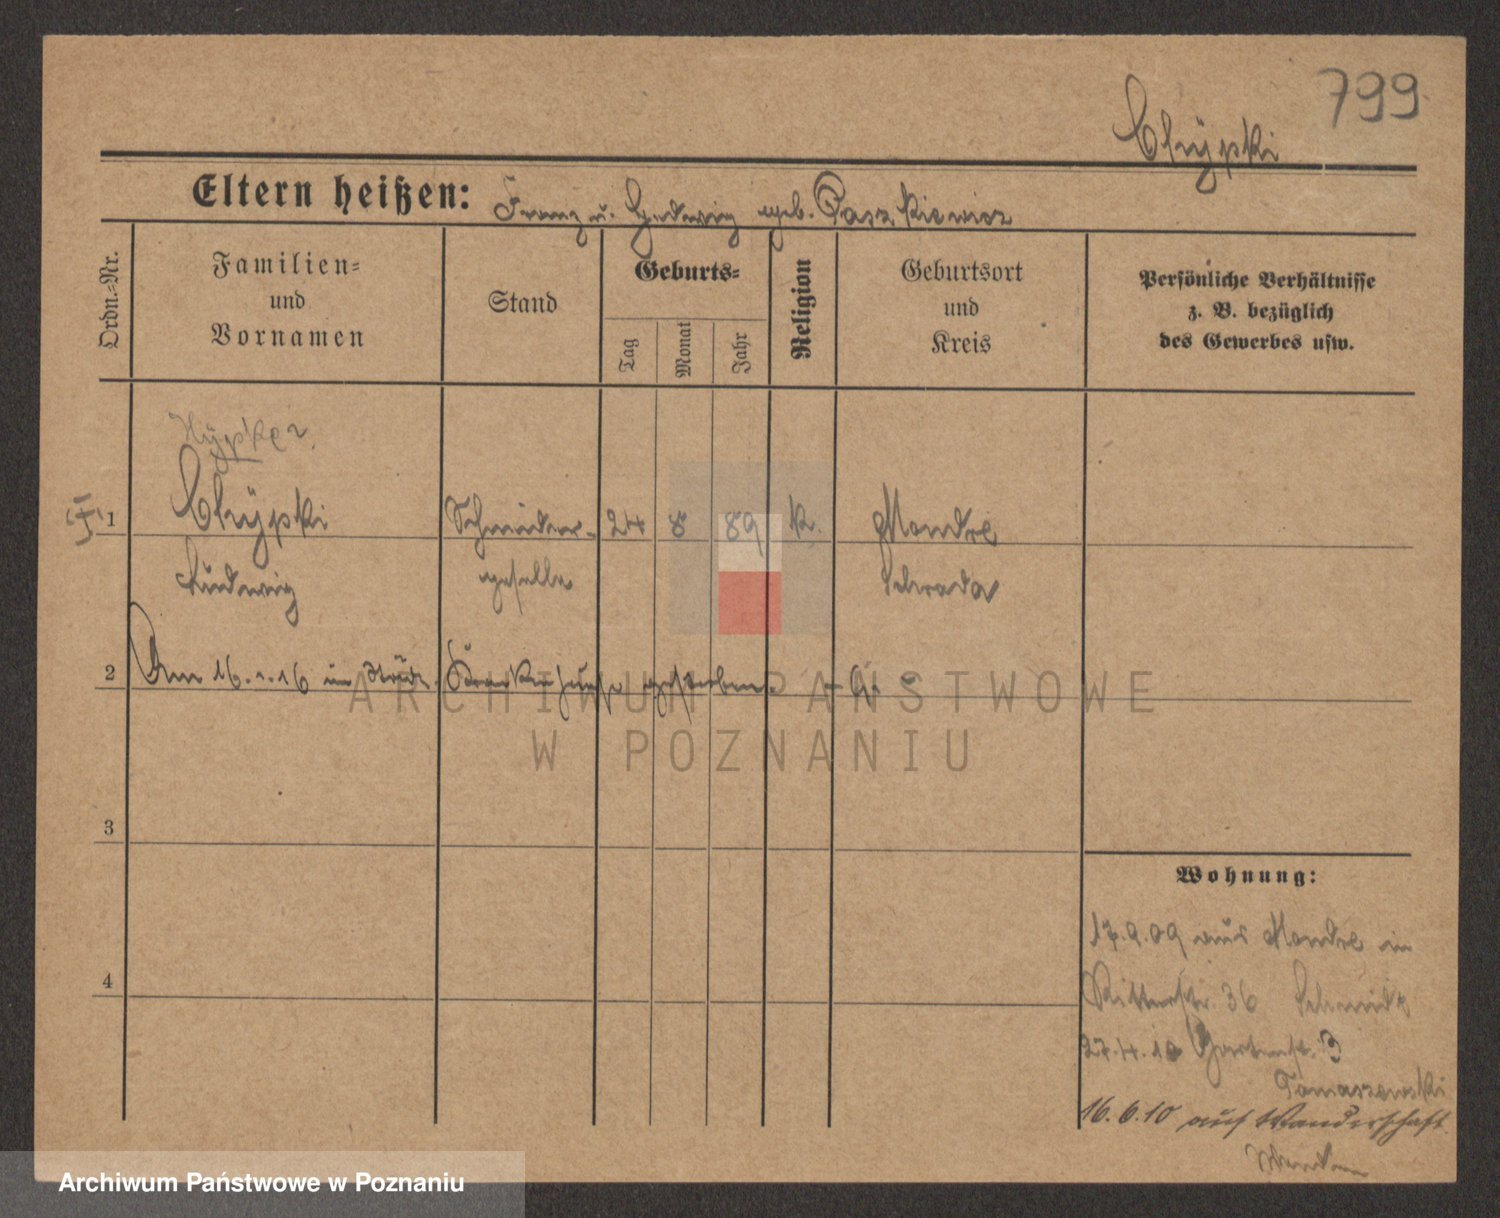 799
Chÿpki
Eltern heißen: Franz u. Hedwig geb. Paszkiewicz
Ordn.-Nr.
Familien-
und
Vornamen
Stand
Geburts-
Tag
Monat
Jahr
Religion
Geburtsort
und
Kreis
Persönliche Verhältnisse
z. B. bezüglich
des Gewerbes usw.
1 Chÿpki Schneider- 24 8 89 k. Mondre
Ludwig geselle Schroda
2 Am 16. 1. 16 im Städt. Krankenhause gestorben.
3
4
Wohnung:
17.9.09 aus Mondre in
Ritterstr. 36 Schmidt
27.4.10 Gartenstr. 3
Tomaszewski
16.6.10 auf Wanderschaft
ARCHIWUM PAŃSTWOWE
W POZNANIU
Archiwum Państwowe w Poznaniu